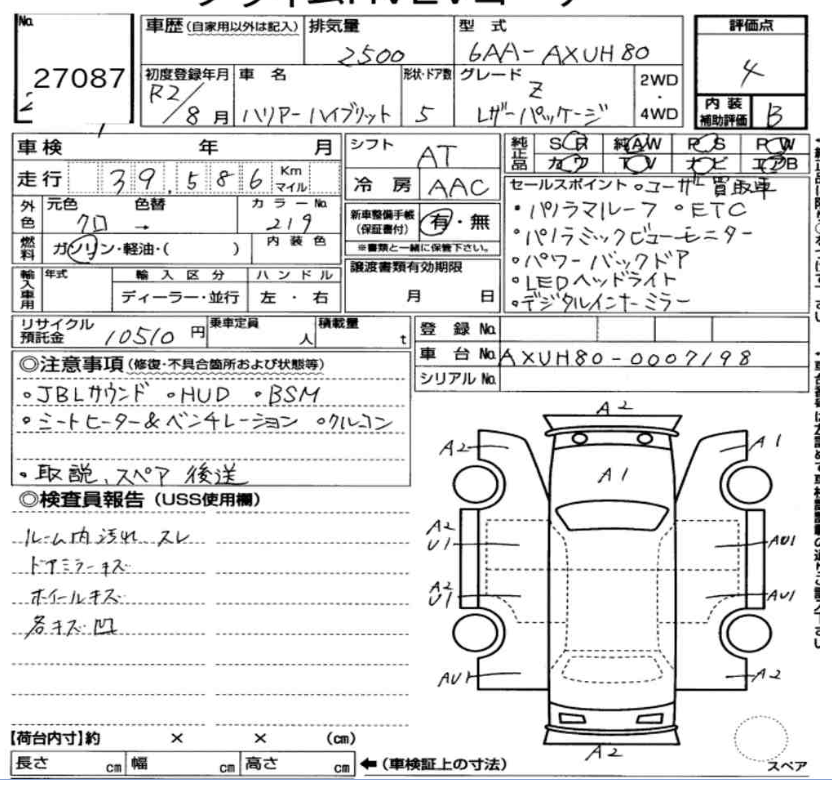 No. 27087
車歴(自家用以外は記入) 排気量 2500 型式 6AA-AXUH80
評価点 4
内装補助評価 B
初度登録年月 R2/8月 車名 ハリアーハイブリット 形状・ドア数 5 グレード Z レザーパッケージ 2WD・4WD
車検 年 月 シフト AT
走行 39,586 Km マイル 冷房 AAC
純正品 SR 純AW PS PW
カワ TV ナビ エアB
セールスポイント ◦ユーザー買取車
・パノラマルーフ ◦ETC
・パノラミックビューモニター
◦パワーバックドア
◦LEDヘッドライト
◦デジタルインナーミラー
外色 元色 クロ 色替 → カラーNo. 219
新車整備手帳(保証書付) 有・無
※書類と一緒に保管下さい。
燃料 ガソリン・軽油・( ) 内装色
輸入車用 年式 輸入区分 ハンドル
ディーラー・並行 左・右
譲渡書類有効期限
月 日
リサイクル預託金 10510円 乗車定員 人 積載量 t
登録No.
車台No. AXUH80-0007198
シリアルNo.
◎注意事項(修復・不具合箇所および状態等)
◦JBLサウンド ◦HUD ◦BSM
◦シートヒーター&ベンチレーション ◦クルコン
◦取説、スペア 後送
◎検査員報告(USS使用欄)
ルーム内汚れ スレ
ドアミラーキズ
ホイールキズ
各キズ凹
A2
A2 A1
A1
A2 U1 AU1
A2 U1 AU1
AU1 A2
A2
スペア
【荷台内寸】約 × × (cm)
長さ cm 幅 cm 高さ cm ←(車検証上の寸法)